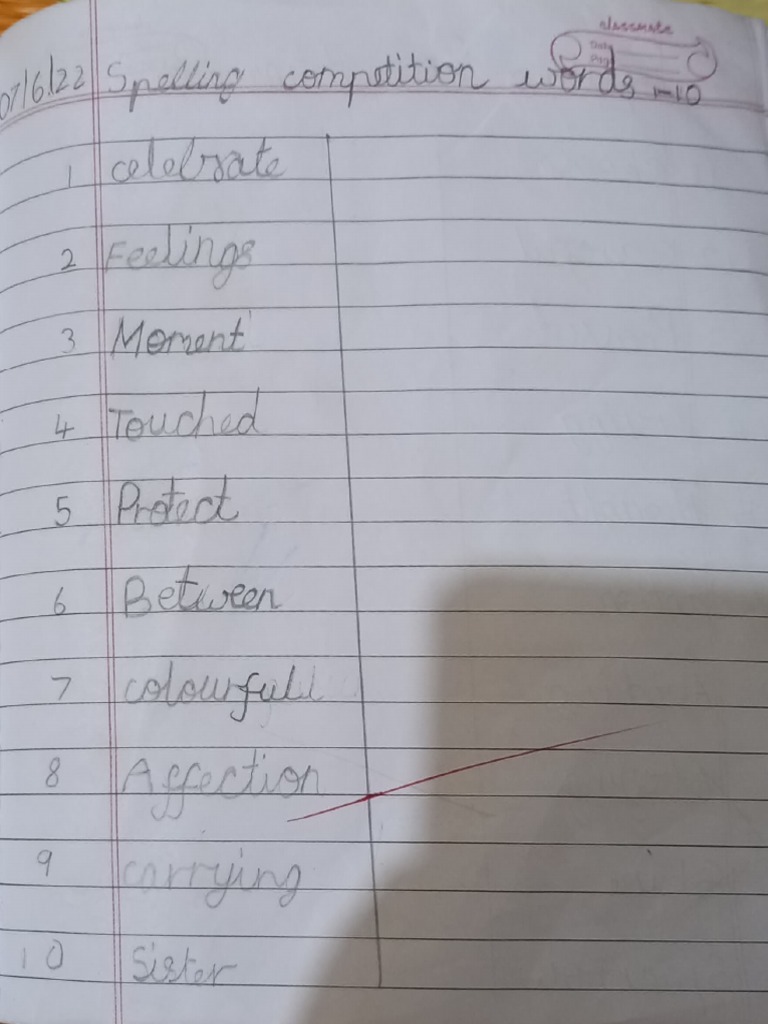 classmate
Date
Page
07/6/22 Spelling competition words 1-10
1 celebrate
2 Feelings
3 Moment
4 Touched
5 Protect
6 Between
7 colourfull
8 Affection
9 carrying
10 Sister